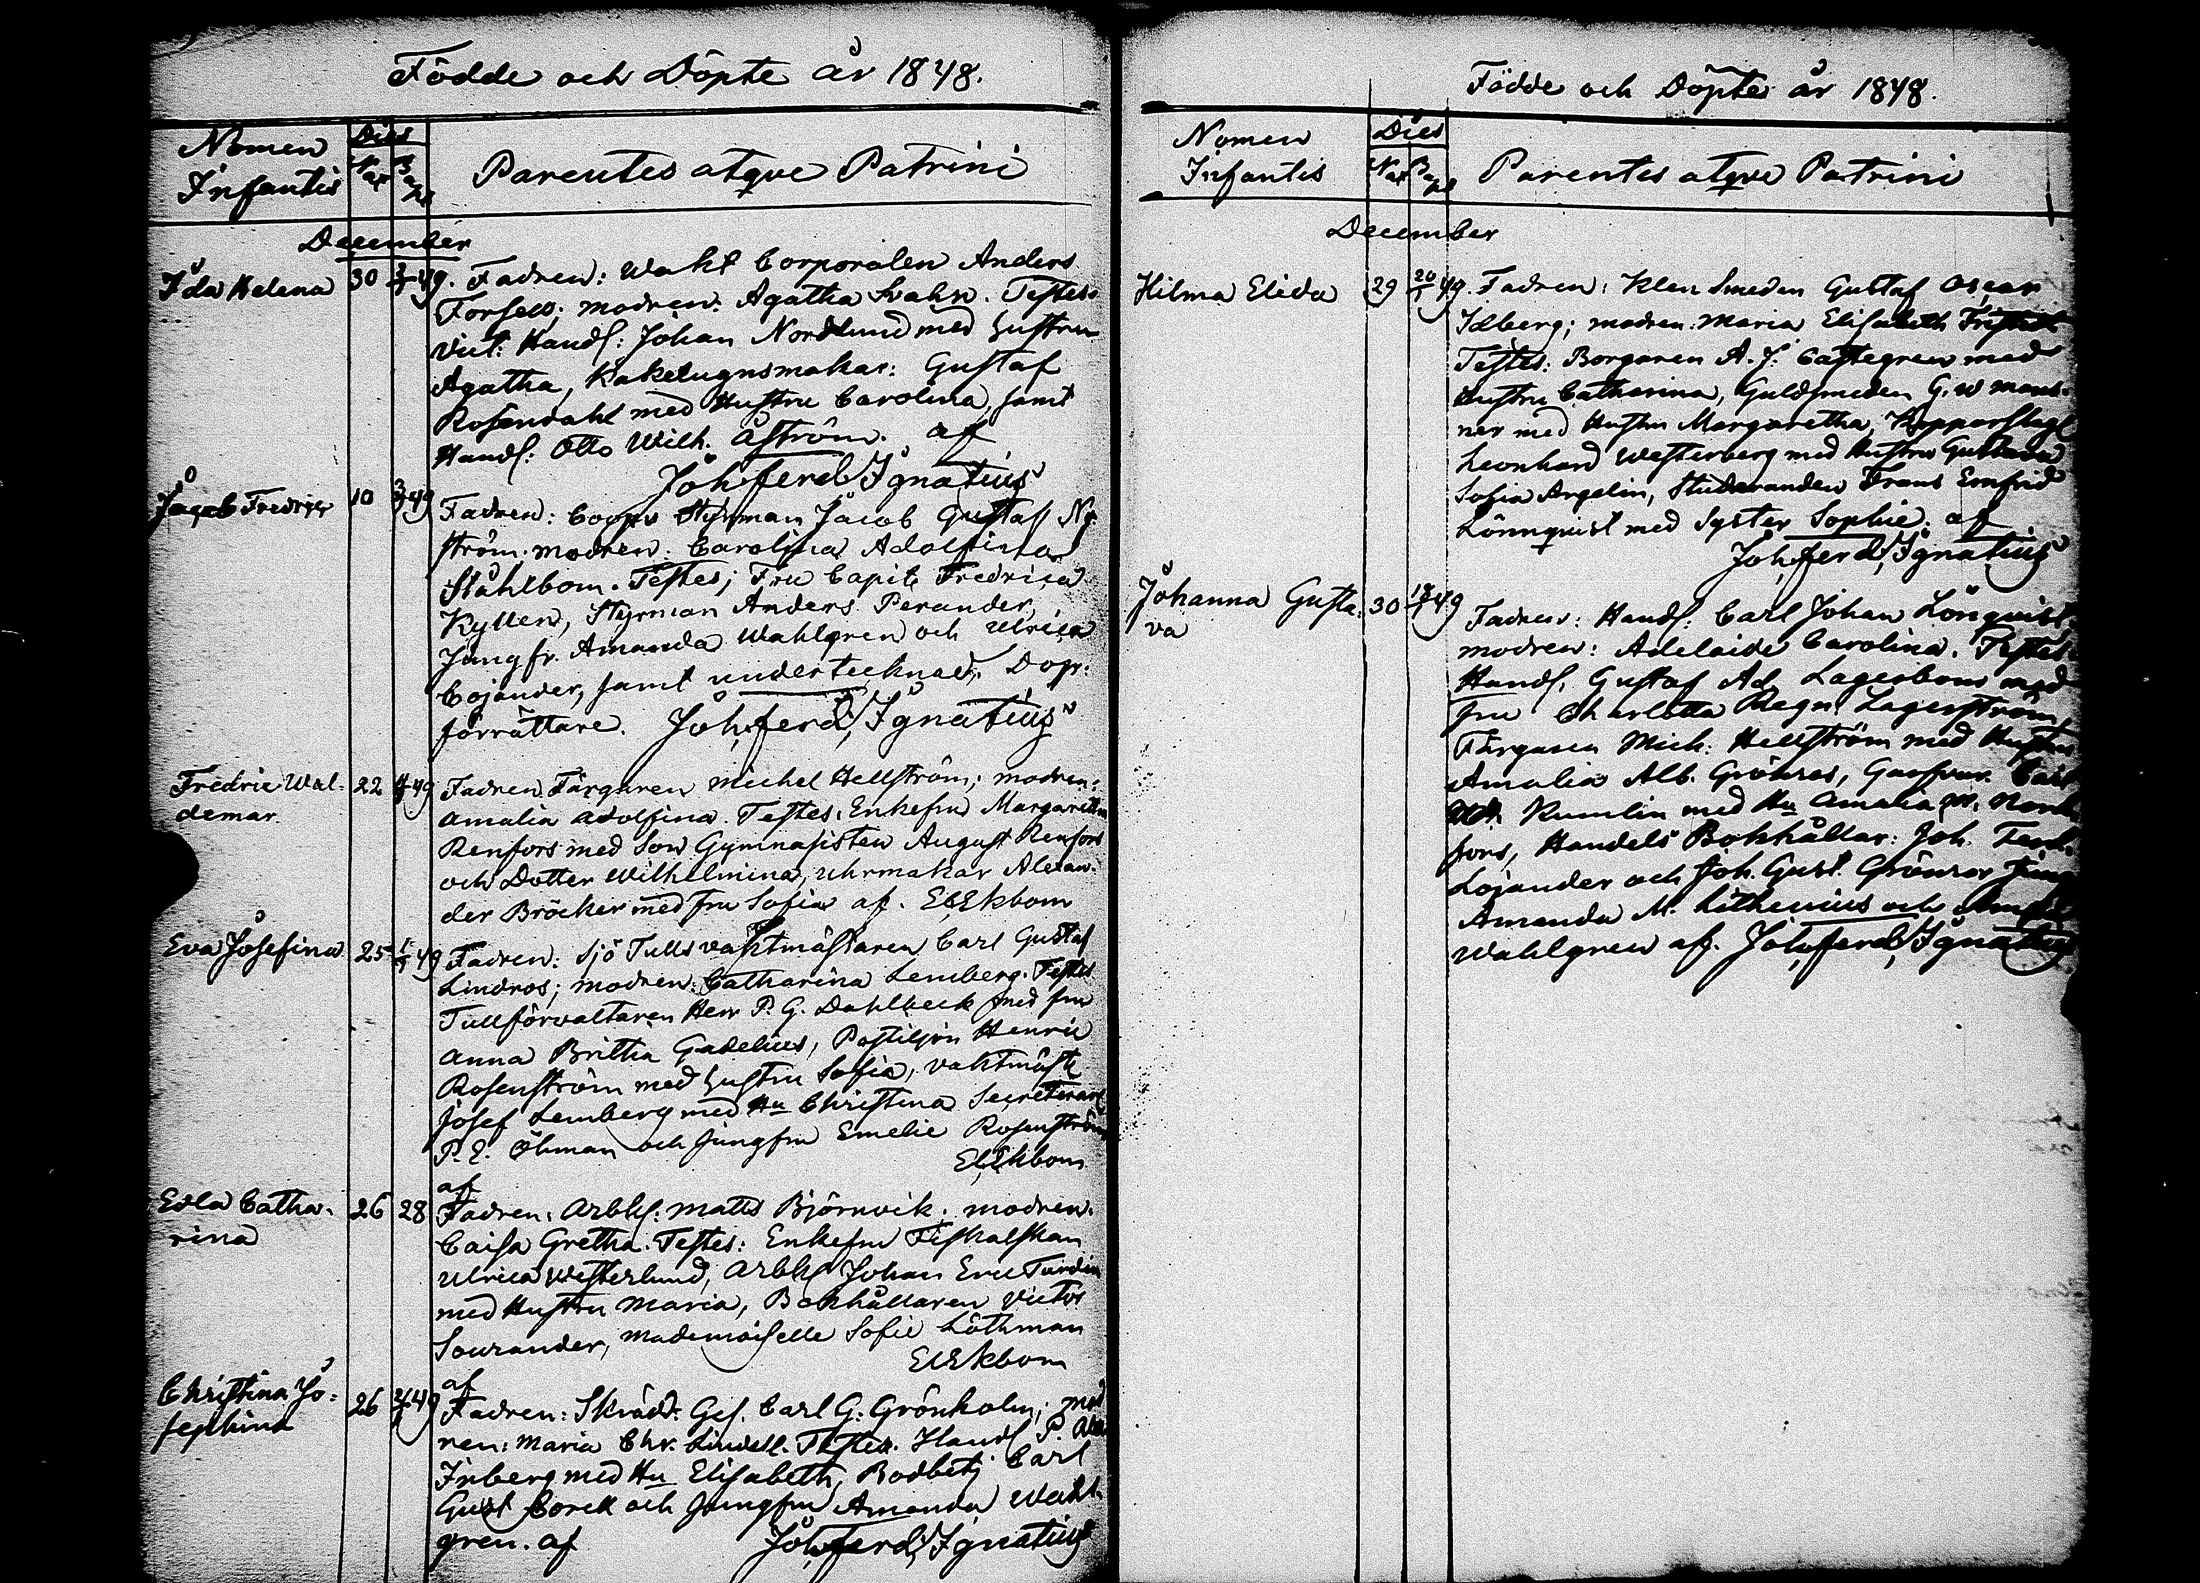 Födde och Döpte år 1848.
Nomen Infantis
Dies
Nat Bapt
Parentes atqve Patrini
December
Ida Helena 30 49. Fadren: Wakt Corporalen Anders
modren: Agatha Svahn. Testes:
Vict: Handl: Johan Nordlund med hustru
Agatha, Kakelugnsmakar: Gustaf
Rosendahl med Hustru Carolina, samt
Handl: Otto Wilh. Åström. af
Joh. Ferd. Ignatius
Jacob Fredric 10 3/1 49 Fadren: Styrman Jacob Gustaf Ny-
ström. modren: Carolina Adolfina
Ståhlbom. Testes; Fru Capit: Fredrica
Styrman Anders Perander,
Jungfr. Amanda Wahlgren och Ulrica
Cojander, samt undertecknad, Dop-
förrättare. Joh. Ferd. Ignatius
Fredric Wal- 22 49 Fadren Färgaren Michel Hellström; modren:
demar. Amalia Adolfina. Testes: Enkefru Margaretha
Renfors med Son Gymnasisten August Renfors
och Dotter Wilhelmina, Uhrmakar Alexan-
der Bröcker med fru Sofia af. Ekbom
Eva Josefina 25 49 Fadren: Sjö Tulls vaktmästaren Carl Gustaf
Lindros; modren: Catharina Lemberg. Testes
Tullförvaltaren Herr P. G. Dahlbeck med fru
Anna Britha Gadelius, Postiljon Henric
Rosenström med hustru Sofia, vaktmäst:
Josef Lemberg med Hu Christina Secreterare
P. E. Öhman och Jungfru Emelie Rosenström
af Ekbom
Edla Catha- 26 28 Fadren: Arbk. Matts Björnvik. modren.
rina Caisa Gretha. Testes: Enkefru Fiskalskan
Ulrica Westerlund, Arbk Johan Eric
med Hustru Maria, Bokhållaren Victor
Sourander, Mademoiselle Sofie Löthman
af Ekbom
Christina Jo- 26 49 Fadren: Skrädd. Ges. Carl G. Grönholm; mod
sephina ren: Maria Chr. Lindell. Testes. Handl P.
Inberg med Hu Elisabeth, Bodbetj Carl
Gust och Jungfru Amanda Wahl-
gren. af Joh. Ferd. Ignatius
Födde och Döpte år 1848.
Nomen Infantis
Dies
Nat Bapt
Parentes atqve Patrini
December
Hilma Elida 29 20/1 49. Fadren: Klen Smeden Gustaf Oscar
Idberg; modren: Maria Elisabeth
Testes: Borgaren A. J. Castegren med
Hustru Catharina, Guldsmeden G. W
ner med Hustru Margaretha, Kopparslag
Leonhard Westerberg med Hustru Gustava
Sofia Argelin, Studeranden Frans Emfrid
Lönnquist med Syster Sophie. af
Joh. Ferd. Ignatius
Johanna Gusta- 30 18/1 49 Fadren: Handl: Carl Johan Lönquist
va modren: Adelaide Carolina. Testes
Handl. Gustaf Ad. Lagerbom med
fru Charlotta Regn. Lagerström,
Färgaren Mich: Hellström med Hustru
Amalia Alb. Grönros, Garfvar. Carl
Kumlin med Hu Amalia W.
fors, Handels Bokhållar: Joh. Ferd.
Cojander och Joh. Gust. Grönros
Amanda M. Lithenius och
Wahlgren af. Joh. Ferd. Ignatius